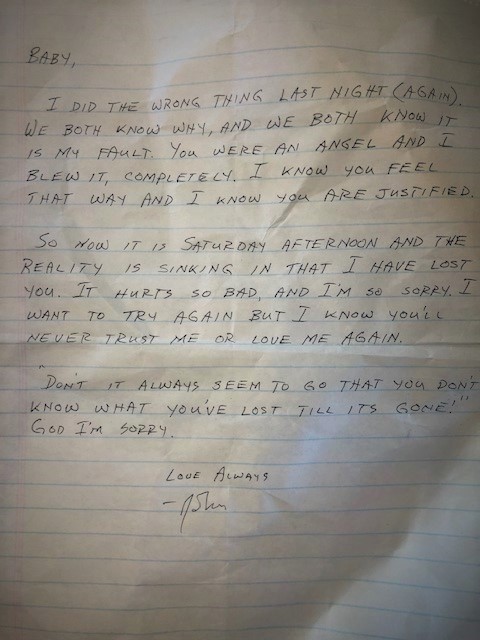 BABY,
I DID THE WRONG THING LAST NIGHT (AGAIN).
WE BOTH KNOW WHY, AND WE BOTH KNOW IT
IS MY FAULT. YOU WERE AN ANGEL AND I
BLEW IT, COMPLETELY. I KNOW YOU FEEL
THAT WAY AND I KNOW YOU ARE JUSTIFIED.
SO NOW IT IS SATURDAY AFTERNOON AND THE
REALITY IS SINKING IN THAT I HAVE LOST
YOU. IT HURTS SO BAD, AND I'M SO SORRY. I
WANT TO TRY AGAIN BUT I KNOW YOU'LL
NEVER TRUST ME OR LOVE ME AGAIN.
"DON'T IT ALWAYS SEEM TO GO THAT YOU DON'T
KNOW WHAT YOU'VE LOST TILL ITS GONE!"
GOD I'M SORRY.
LOVE ALWAYS
- John